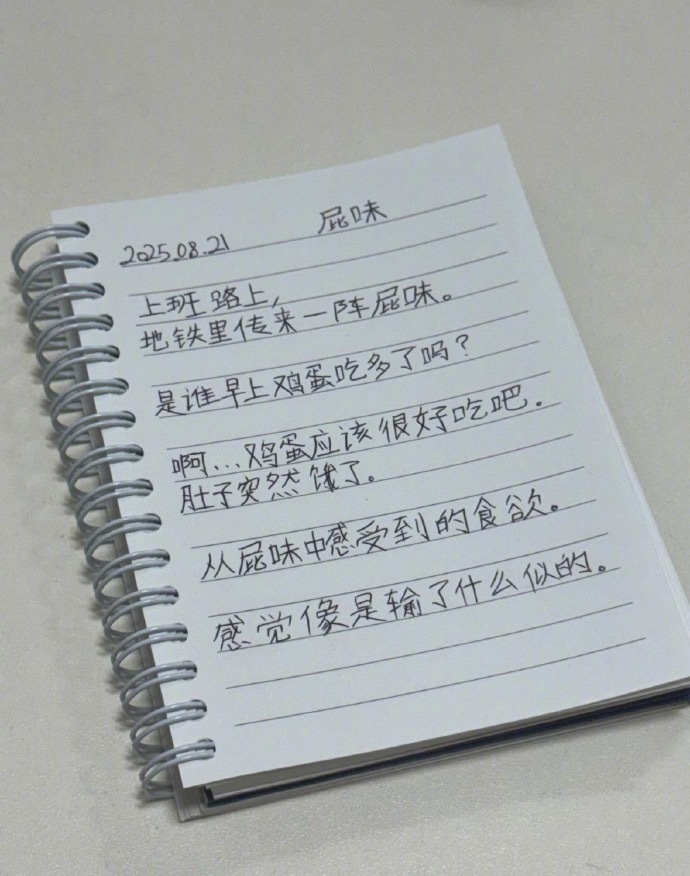 2025.08.21 屁味
上班路上,
地铁里传来一阵屁味。
是谁早上鸡蛋吃多了吗?
啊...鸡蛋应该很好吃吧.
肚子突然饿了。
从屁味中感受到的食欲。
感觉像是输了什么似的。